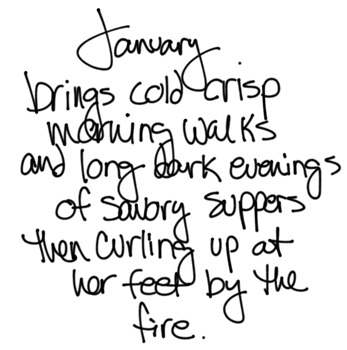 January
brings cold crisp
morning walks
and long dark evenings
of savory suppers
then curling up at
her feet by the
fire.